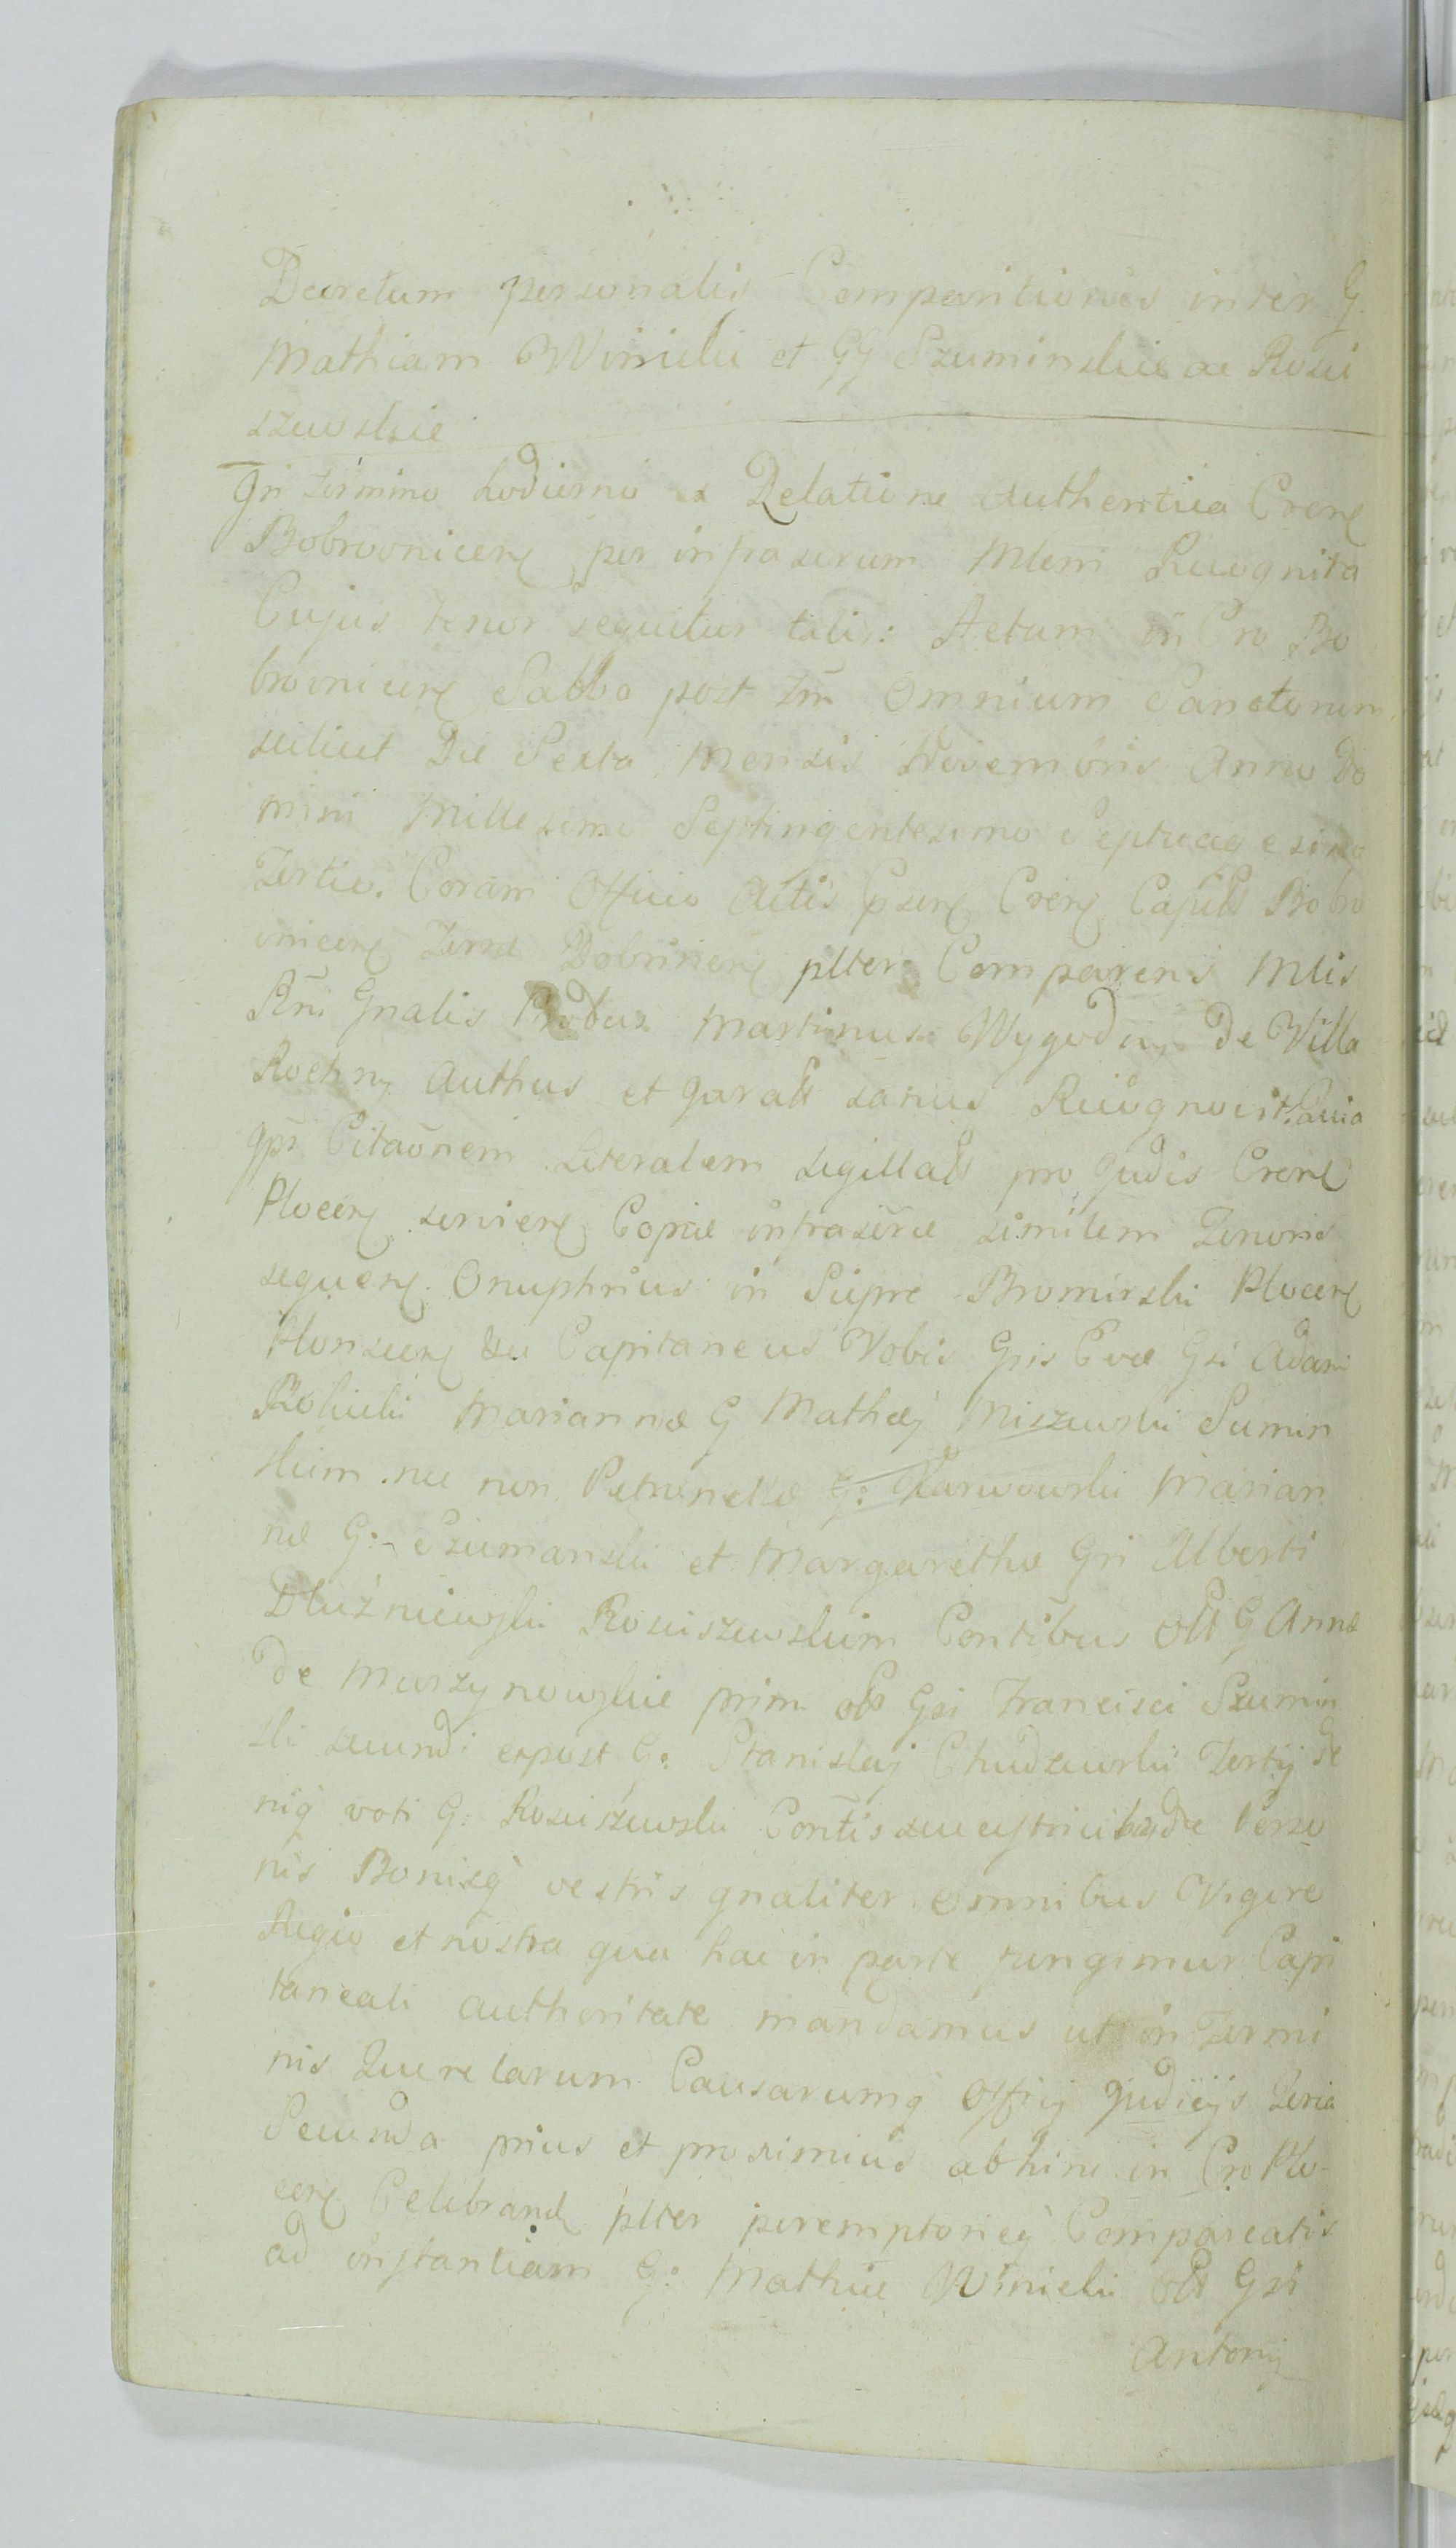 Decretum personalis Comparitionis inter G.
Mathiam Winicki et GG Szuminskie ac Rosci
szewskie
In termino hodierno ex Relatione authentica Cren
Bobrovnicen per infrascrum Mlem Recognita
Cujus tenor sequitur talis: Actum in Cro Bo
brovnicen Sabbo post Fm Omnium Sanctorum
scilicet Die Sexta Mensis Novembris Anno Do
mini Millesimo Septingentesimo Septuagesimo
Tertio. Coram Officio Actis Cren Capits Bobro
vnicen Terræ Dobrinen plter Comparens Mlis
Rni Gnalis Produs Martinus Wygoda de Villa
Rochny Authus et jurat Recognovit. Quia
ips Citaonem Literalem sigillat pro Judis Cren
Plocen servien Copiæ infrascræ similem Tenoris
sequen. Onuphrius in Siepre Bromirski Plocen
Plonscen &c Capitaneus Vobis Gsis Evæ Gsi Adami
Robicki Mariannæ G Mathæj Miszewski Sumin
skim nec non Petronellæ G: Karwowski Marian
næ G: Sziumanski et Margarethæ Gsi Alberti
Dłuźniewski Rosciszewskim Contibus olt G Annæ
de Murzynowskie prim olt Gsi Francisci Szumin
ski secundi expost G: Stanislaj Chudzewski Tertij de
niq voti G: Rosciszewski Contis successtricibq de Perso
nis Bonisq vestris gnaliter omnibus Vigore
Regio et nostra qua hac in parte fungimur Capi
taneali authoritate mandamus ut in Termi
nis Querelarum Causarumq Officij Judicijs Feria
Secunda prius et proximius abhinc in Cro Plo-
cen Celebrand plter peremptorieq Compareatis
ad instantiam G: Mathiæ Winicki olt Gsi
Antonij